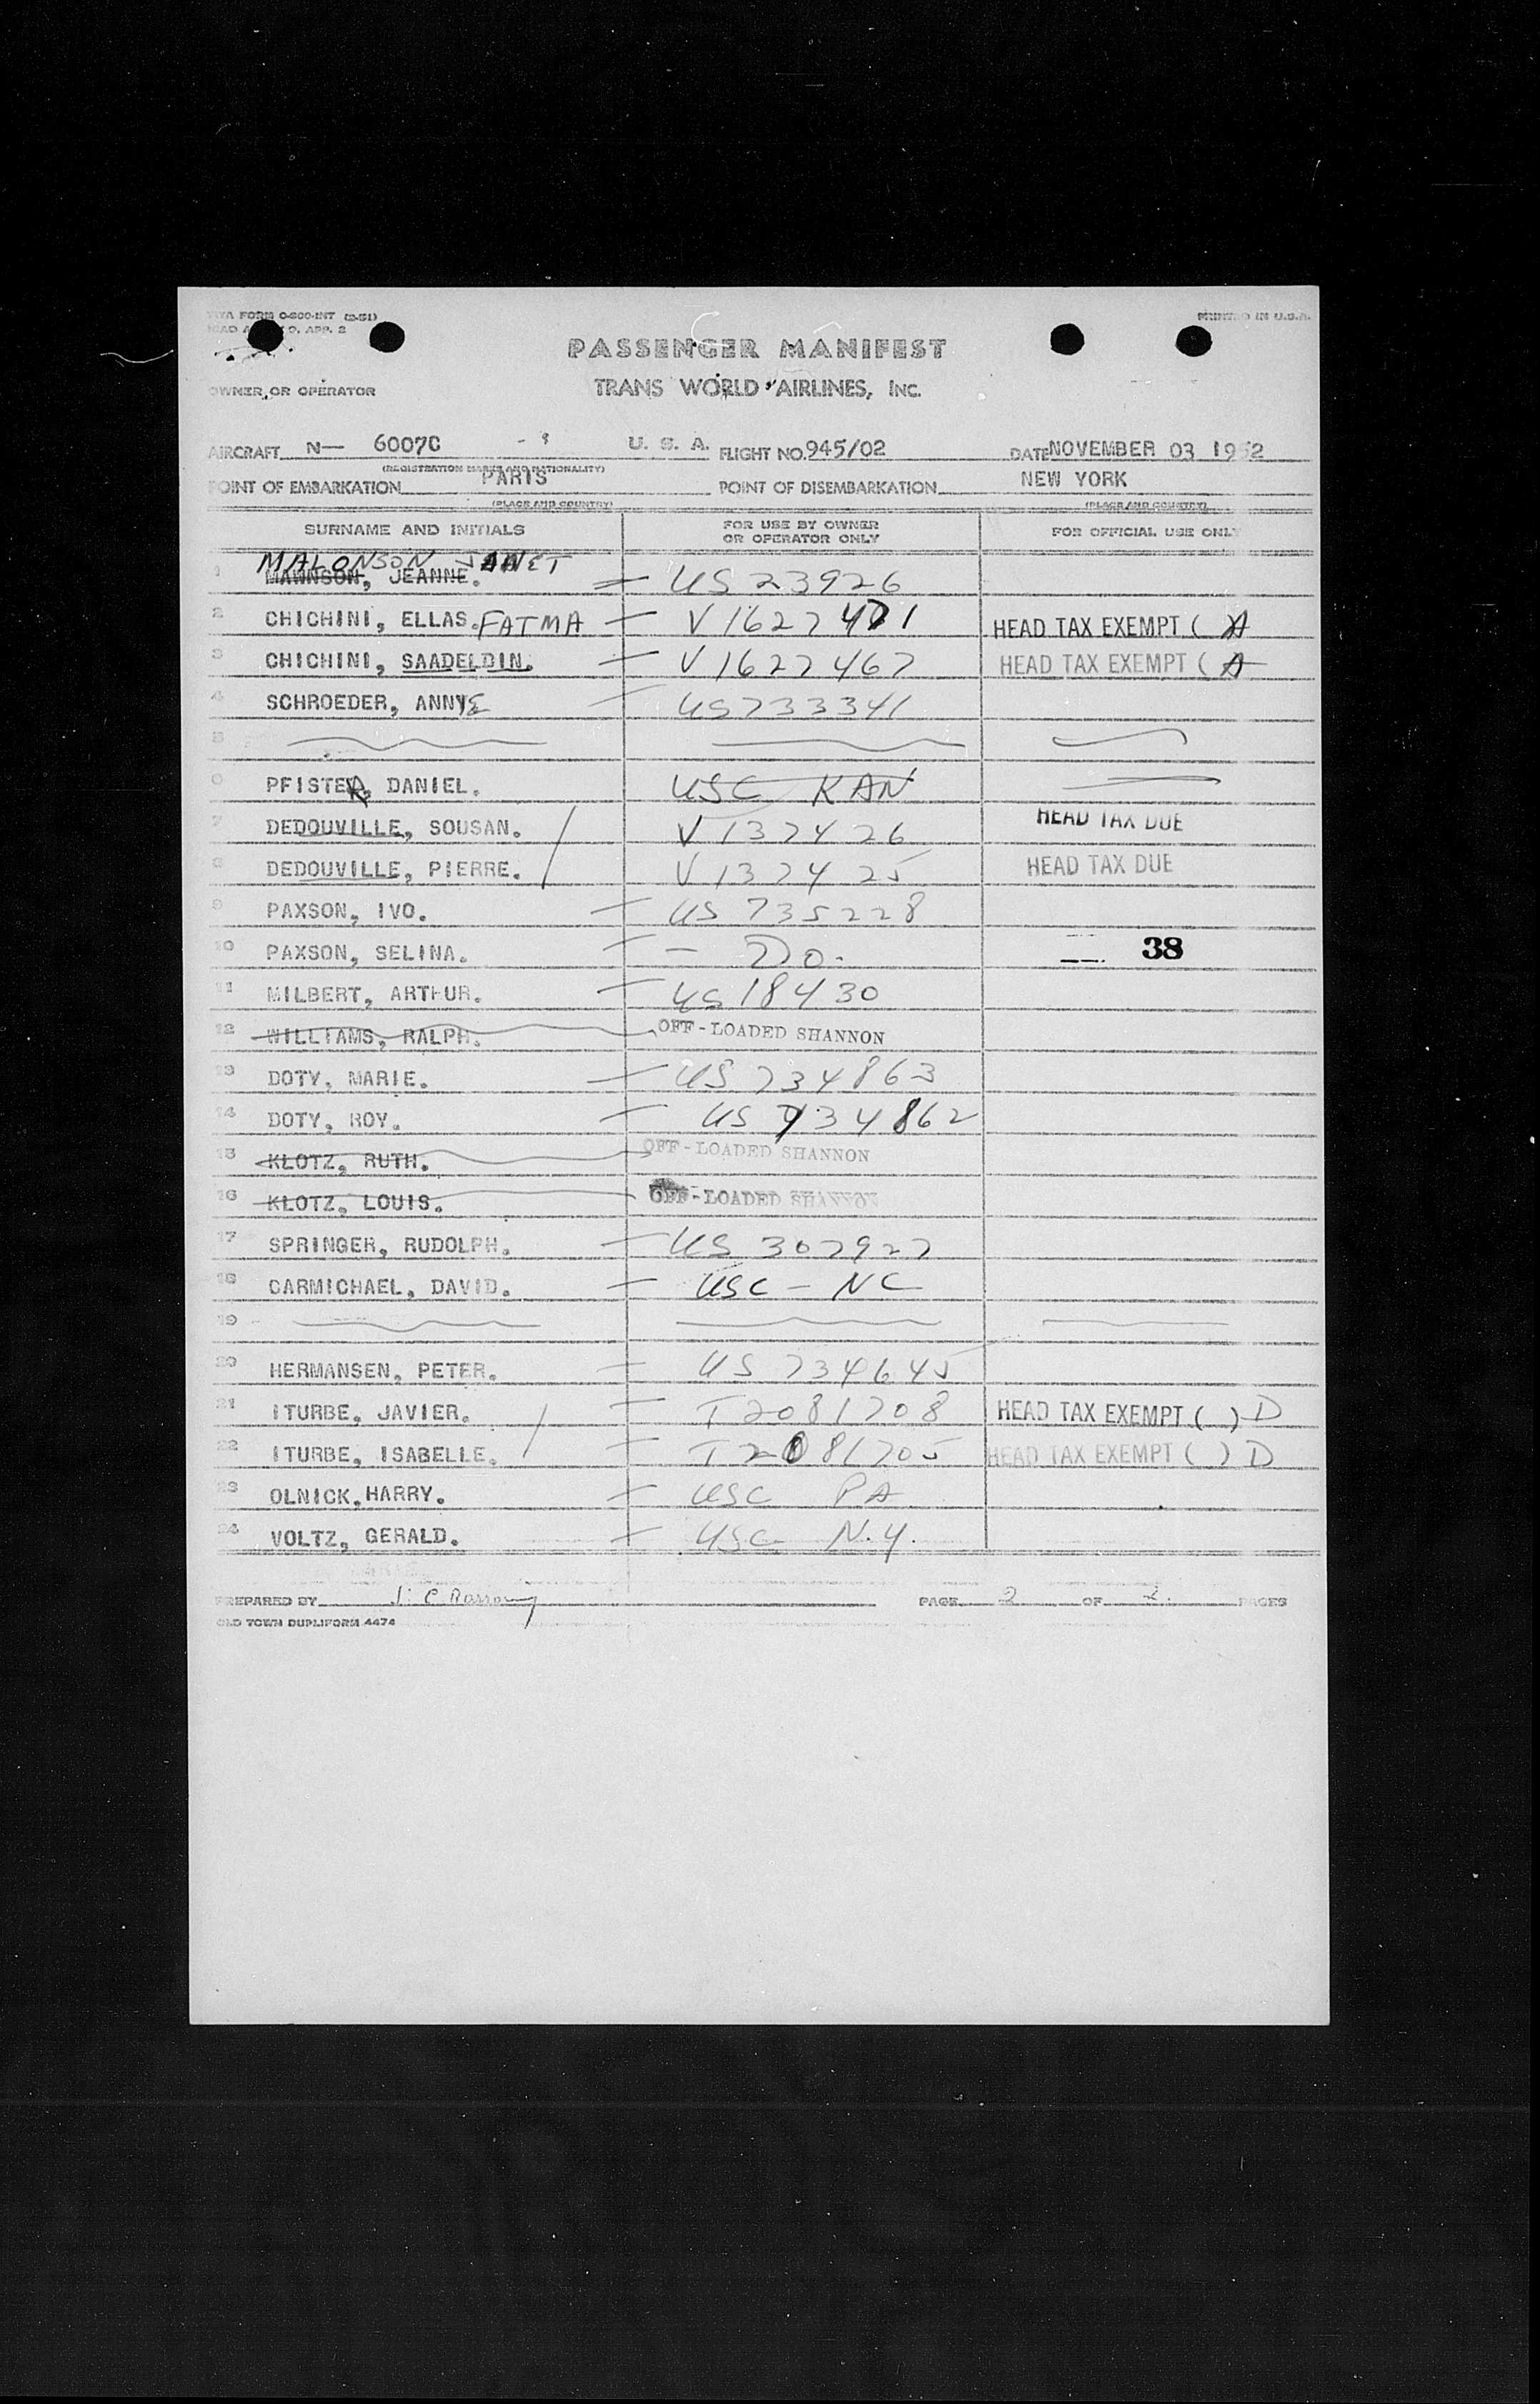 TWA FORM O-800-INT (2-51)
PRINTED IN U.S.A.
PASSENGER MANIFEST
OWNER OR OPERATOR TRANS WORLD AIRLINES, INC.
AIRCRAFT N— 6007C U. S. A. FLIGHT NO. 945/02 DATE NOVEMBER 03 1952
(REGISTRATION MARKS AND NATIONALITY)
POINT OF EMBARKATION PARIS POINT OF DISEMBARKATION NEW YORK
(PLACE AND COUNTRY) (PLACE AND COUNTRY)
SURNAME AND INITIALS FOR USE BY OWNER OR OPERATOR ONLY FOR OFFICIAL USE ONLY
MALONSON JANET
1 MAWNSON, JEANNE. US 23926
2 CHICHINI, ELLAS. FATMA — V 1627471 HEAD TAX EXEMPT ( A
3 CHICHINI, SAADELDIN. — V 1627467 HEAD TAX EXEMPT ( A
4 SCHROEDER, ANNYE — US 733341
5
6 PFISTER, DANIEL. USC KAN
7 DEDOUVILLE, SOUSAN. V 137426 HEAD TAX DUE
8 DEDOUVILLE, PIERRE. V 137425 HEAD TAX DUE
9 PAXSON, IVO. — US 735228
10 PAXSON, SELINA. — — DO. 38
11 MILBERT, ARTHUR. — US 18430
12 WILLIAMS, RALPH. OFF-LOADED SHANNON
13 DOTY, MARIE. — US 734863
14 DOTY, ROY. — US 734862
15 KLOTZ, RUTH. OFF-LOADED SHANNON
16 KLOTZ, LOUIS. OFF-LOADED SHANNON
17 SPRINGER, RUDOLPH. — US 307927
18 CARMICHAEL, DAVID. — USC — NC
19
20 HERMANSEN, PETER. — US 734645
21 ITURBE, JAVIER. — T 2081708 HEAD TAX EXEMPT ( ) D
22 ITURBE, ISABELLE. — T 2081705 HEAD TAX EXEMPT ( ) D
23 OLNICK, HARRY. — USC PA
24 VOLTZ, GERALD. — USC N.Y.
PREPARED BY J. C. PAGE 2 OF 2 PAGES
OLD TOWN DUPLIFORM 4474